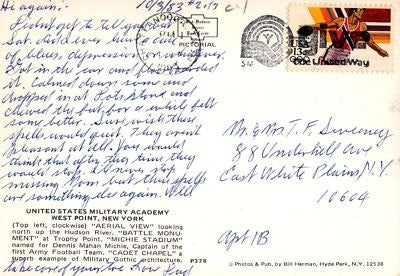 Hi again;
10/3/83 #2019
I don't get to tell you
Sat. did I ever have a case
of blues, depression or whatever.
Got in the car and
it. Calmed down some and
dropped in at
Chewed the but, box a while felt
some better. Sure wish these
spells would quit. They aren't
pleasant at all. You would
think that after this time they
would stop. I'll never stop
missing Mom but these spells
are something else again. Well
take care of your
PICTORIAL
USA 13c
The United Way
Mr. & Mrs. T. F. Sweeney
88 Underhill Ave
East White Plains N.Y.
10604
Apt 1B
UNITED STATES MILITARY ACADEMY
WEST POINT, NEW YORK
(Top left, clockwise) "AERIAL VIEW" looking
north up the Hudson River, "BATTLE MONU-
MENT" at Trophy Point. "MICHIE STADIUM"
named for Dennis Mahan Michie, Captain of the
first Army Football Team. "CADET CHAPEL" a
superb example of Military Gothic architecture.
P378
© Photos & Pub. by Bill Herman, Hyde Park, N.Y. 12538